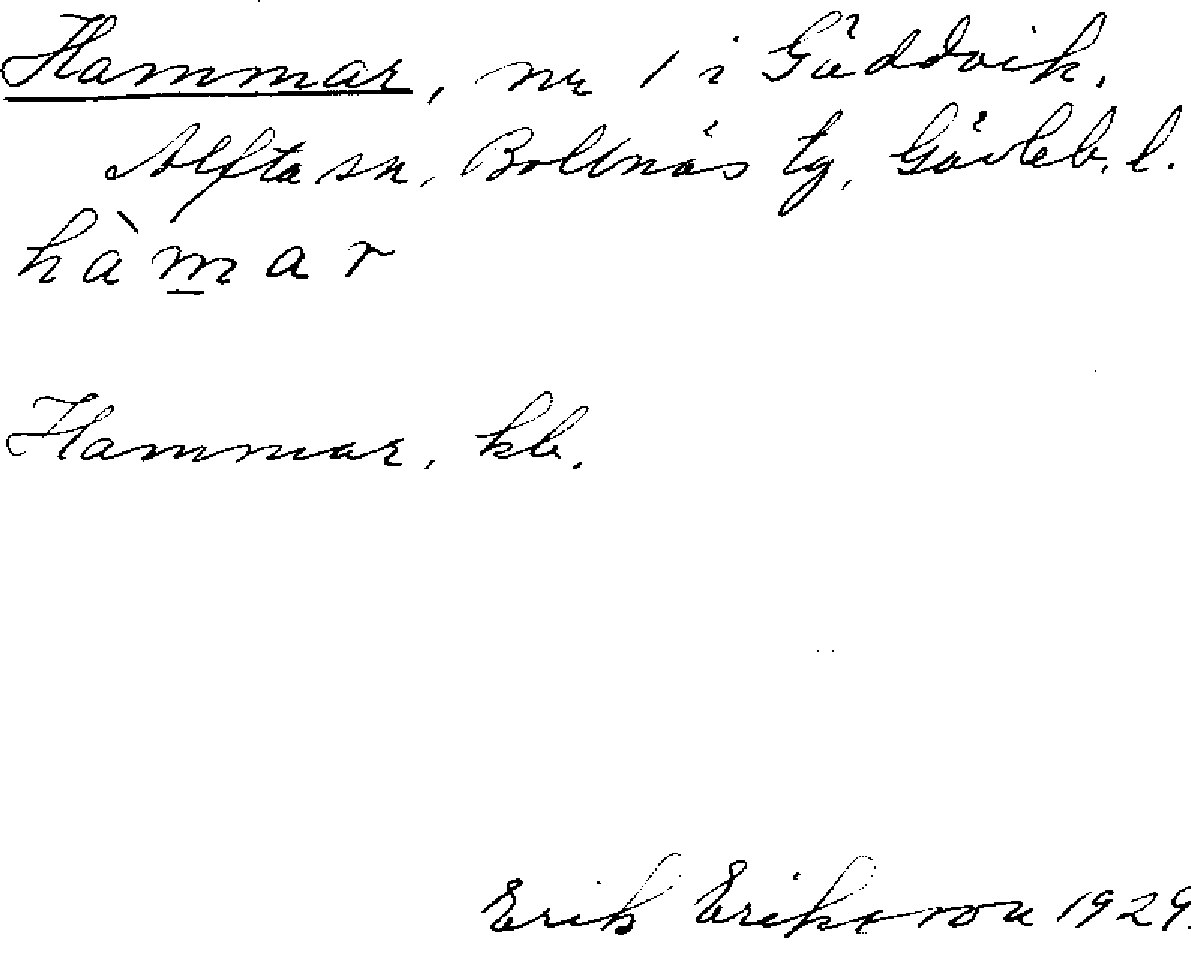 Hammar, nr 1 i Gäddvik,
Alfta sn, Bollnäs tg, Gävleb. l.
hàm̲ar
Hammar, kb.
Erik Eriksson 1929.